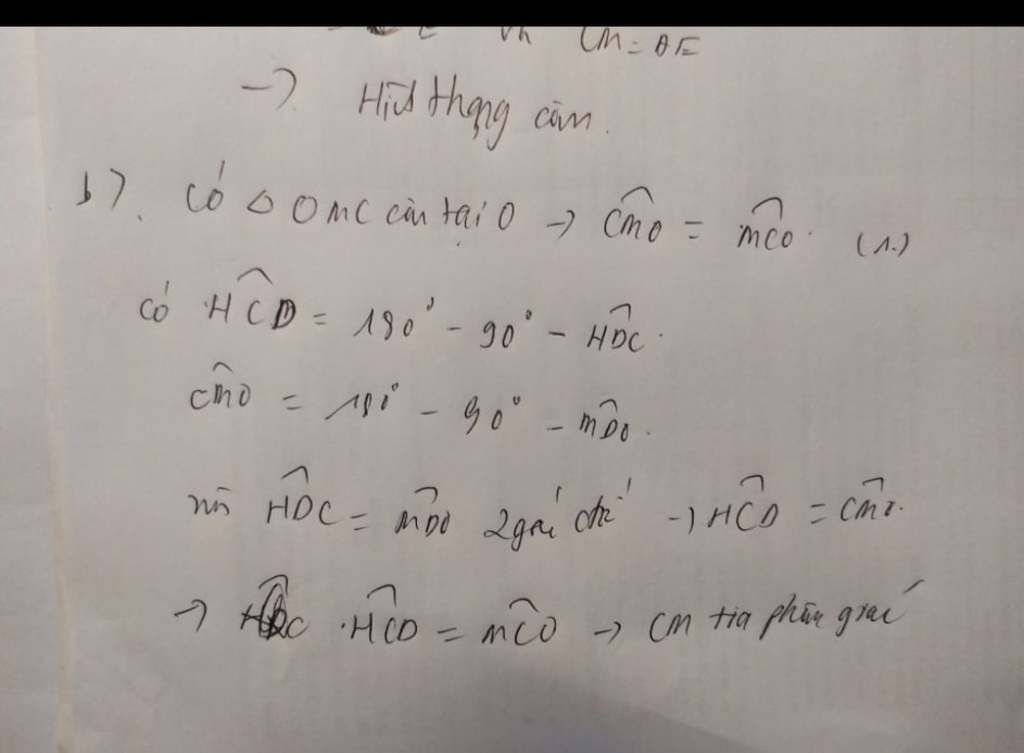 CM = AE
→ Hình thang cân.
b). Có △ OMC cân tại O → CMO = MCO. (1.)
Có HCD = 180° - 90° - HDC.
CMO = 180° - 90° - MDO.
mà HDC = MDO → HCD = CMO.
→ HCD = MCO → CM tia phân giác